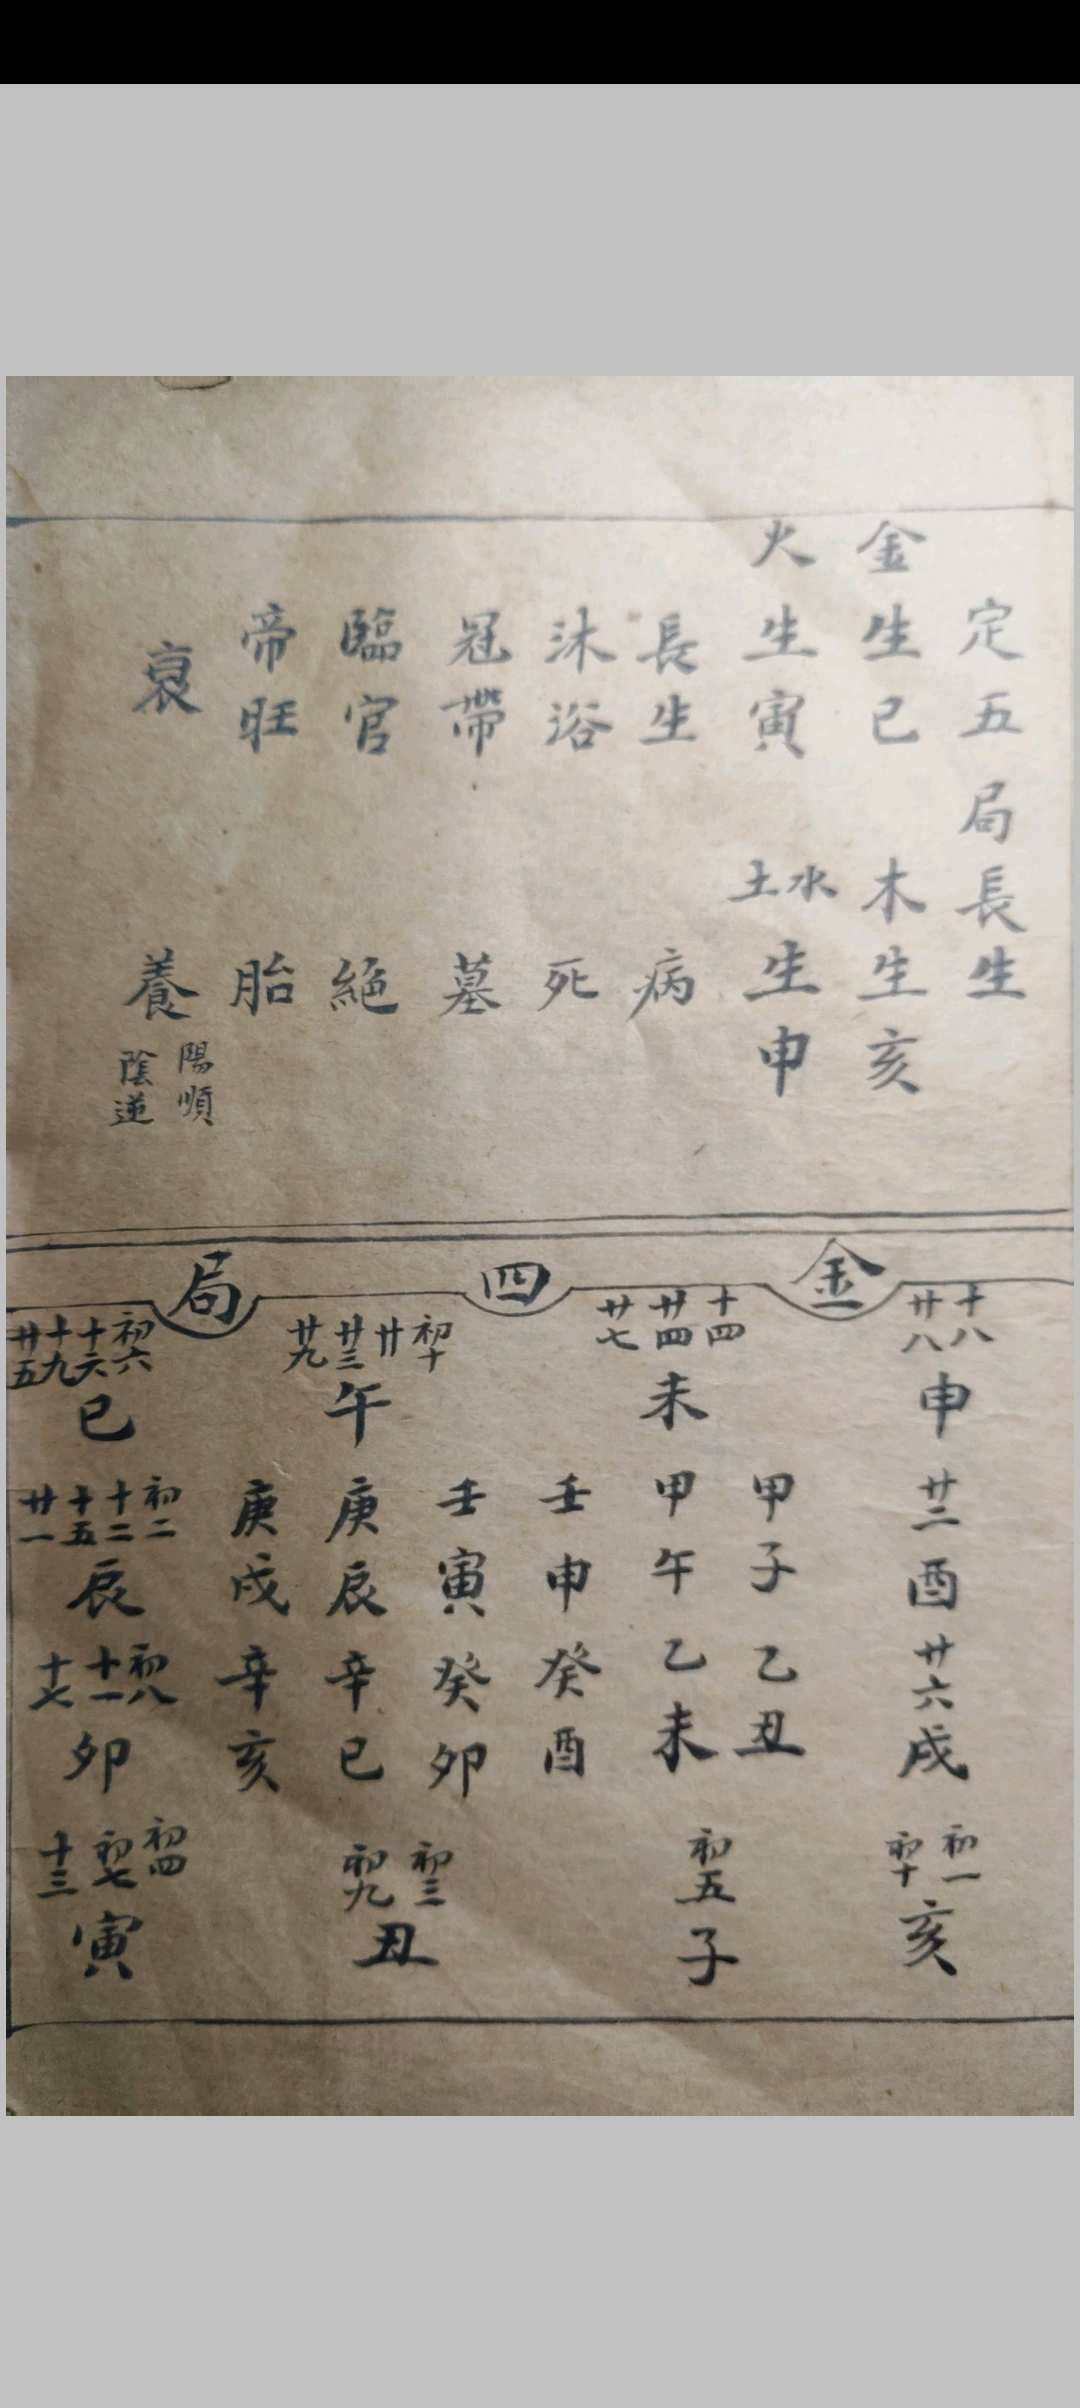 定五局長生
金生巳 木生亥
火生寅 水土生申
長生 病
沐浴 死
冠帶 墓
臨官 絕
帝旺 胎
衰 養 陽順 陰逆
金四局
十八 廿八 申
廿二 酉
廿六 戌
初一 初十 亥
十四 廿四 廿七 未
甲子 乙丑
甲午 乙未
初五 子
壬申 癸酉
壬寅 癸卯
初十 廿 廿三 廿九 午
庚辰 辛巳
庚戌 辛亥
初三 初九 丑
初六 十六 十九 廿五 巳
初二 十二 十五 廿一 辰
初八 十一 十七 卯
初四 初七 十三 寅